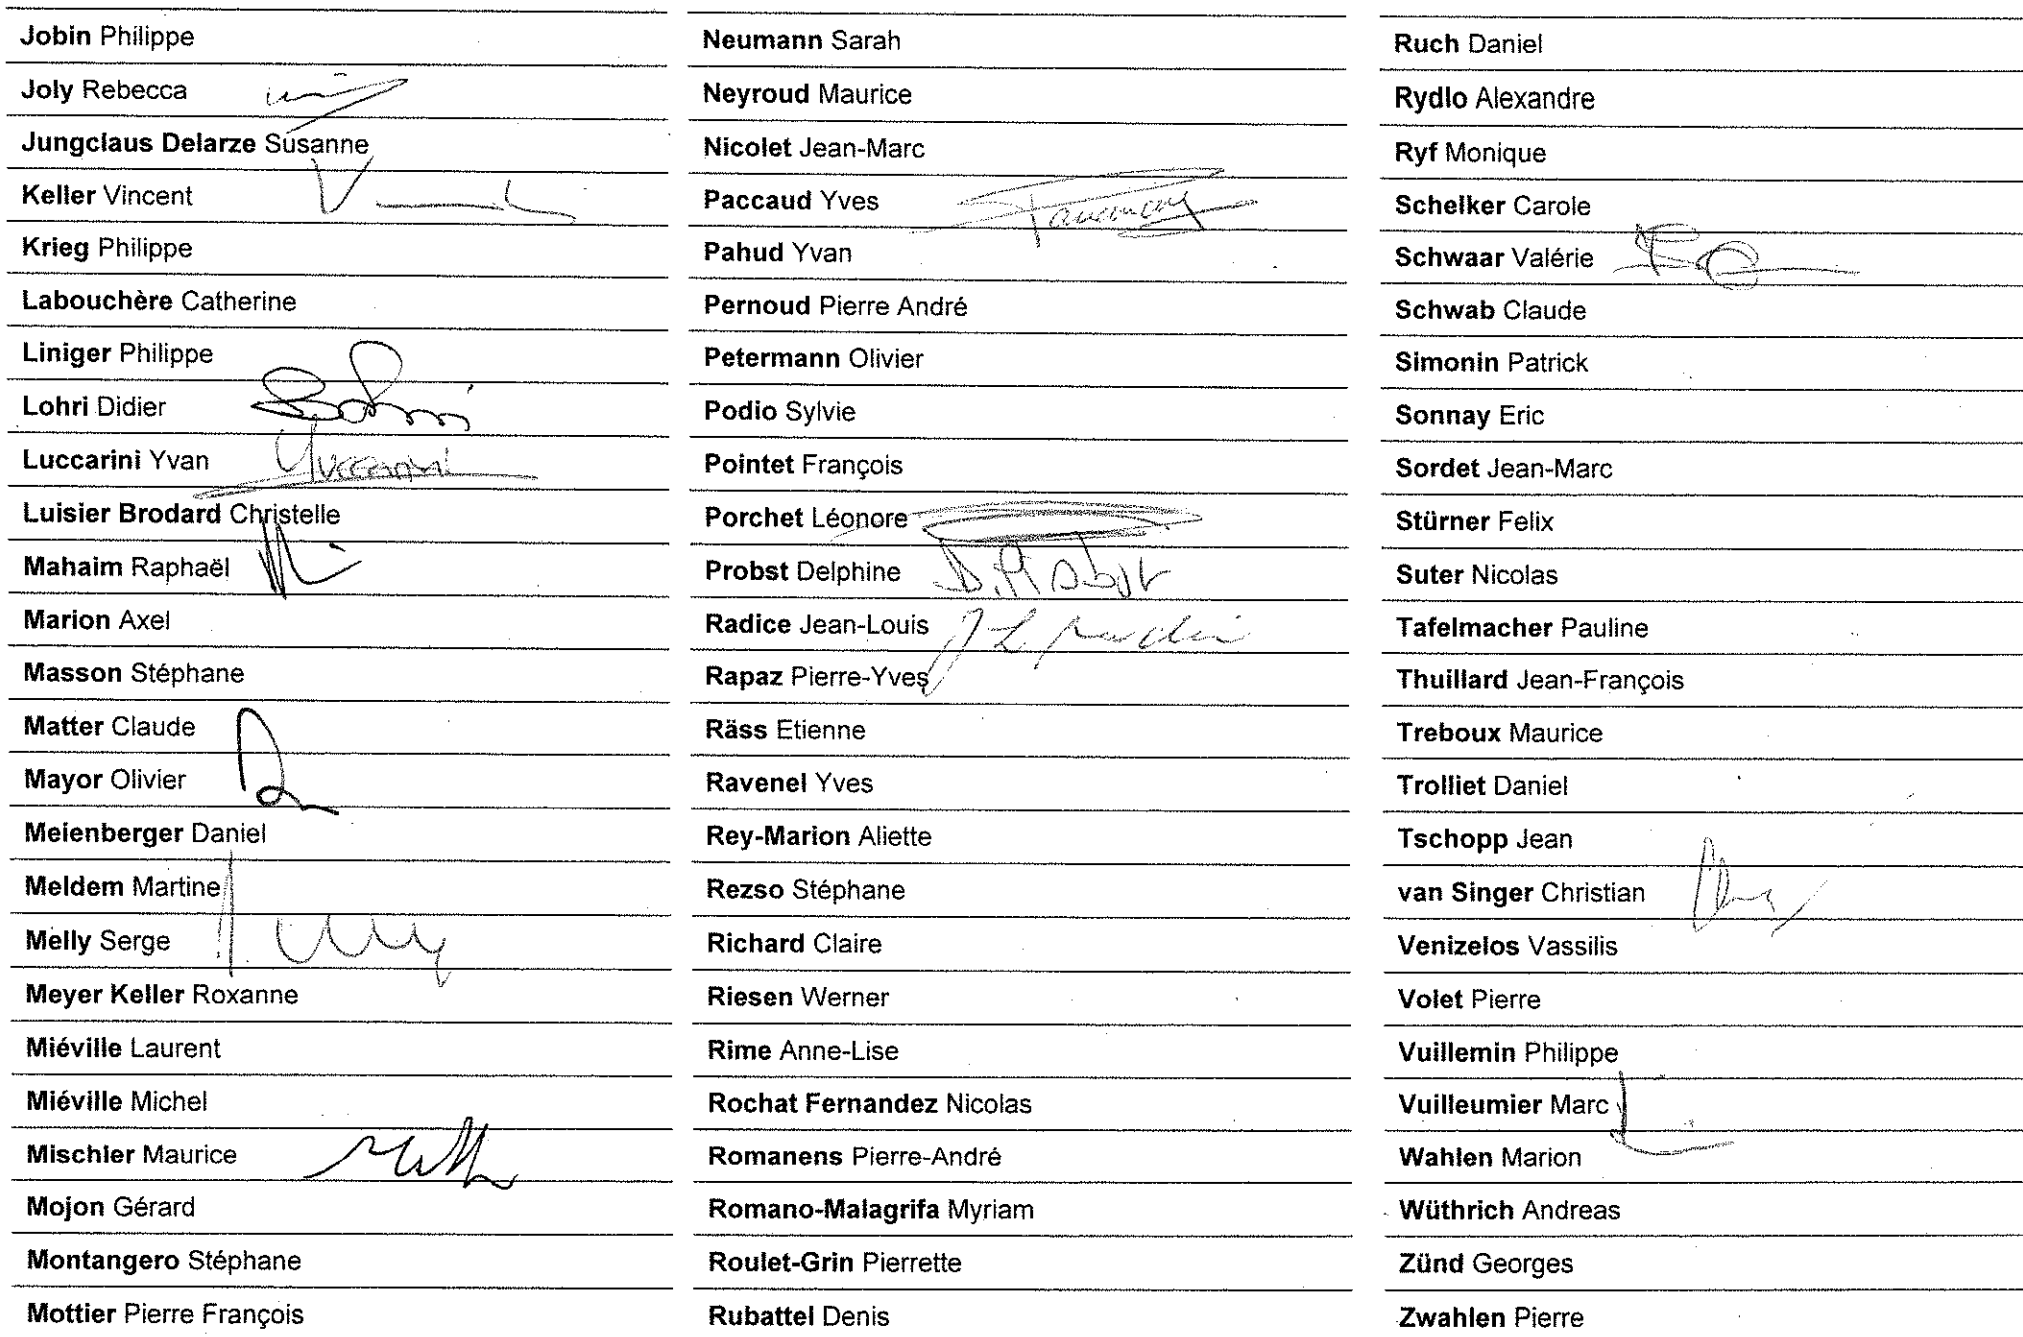 Jobin Philippe
Joly Rebecca
Jungclaus Delarze Susanne
Keller Vincent
Krieg Philippe
Labouchère Catherine
Liniger Philippe
Lohri Didier
Luccarini Yvan
Luisier Brodard Christelle
Mahaim Raphaël
Marion Axel
Masson Stéphane
Matter Claude
Mayor Olivier
Meienberger Daniel
Meldem Martine
Melly Serge
Meyer Keller Roxanne
Miéville Laurent
Miéville Michel
Mischler Maurice
Mojon Gérard
Montangero Stéphane
Mottier Pierre François
Neumann Sarah
Neyroud Maurice
Nicolet Jean-Marc
Paccaud Yves
Pahud Yvan
Pernoud Pierre André
Petermann Olivier
Podio Sylvie
Pointet François
Porchet Léonore
Probst Delphine D. Probst
Radice Jean-Louis
Rapaz Pierre-Yves
Räss Etienne
Ravenel Yves
Rey-Marion Aliette
Rezso Stéphane
Richard Claire
Riesen Werner
Rime Anne-Lise
Rochat Fernandez Nicolas
Romanens Pierre-André
Romano-Malagrifa Myriam
Roulet-Grin Pierrette
Rubattel Denis
Ruch Daniel
Rydlo Alexandre
Ryf Monique
Schelker Carole
Schwaar Valérie
Schwab Claude
Simonin Patrick
Sonnay Eric
Sordet Jean-Marc
Stürner Felix
Suter Nicolas
Tafelmacher Pauline
Thuillard Jean-François
Treboux Maurice
Trolliet Daniel
Tschopp Jean
van Singer Christian
Venizelos Vassilis
Volet Pierre
Vuillemin Philippe
Vuilleumier Marc
Wahlen Marion
Wüthrich Andreas
Zünd Georges
Zwahlen Pierre